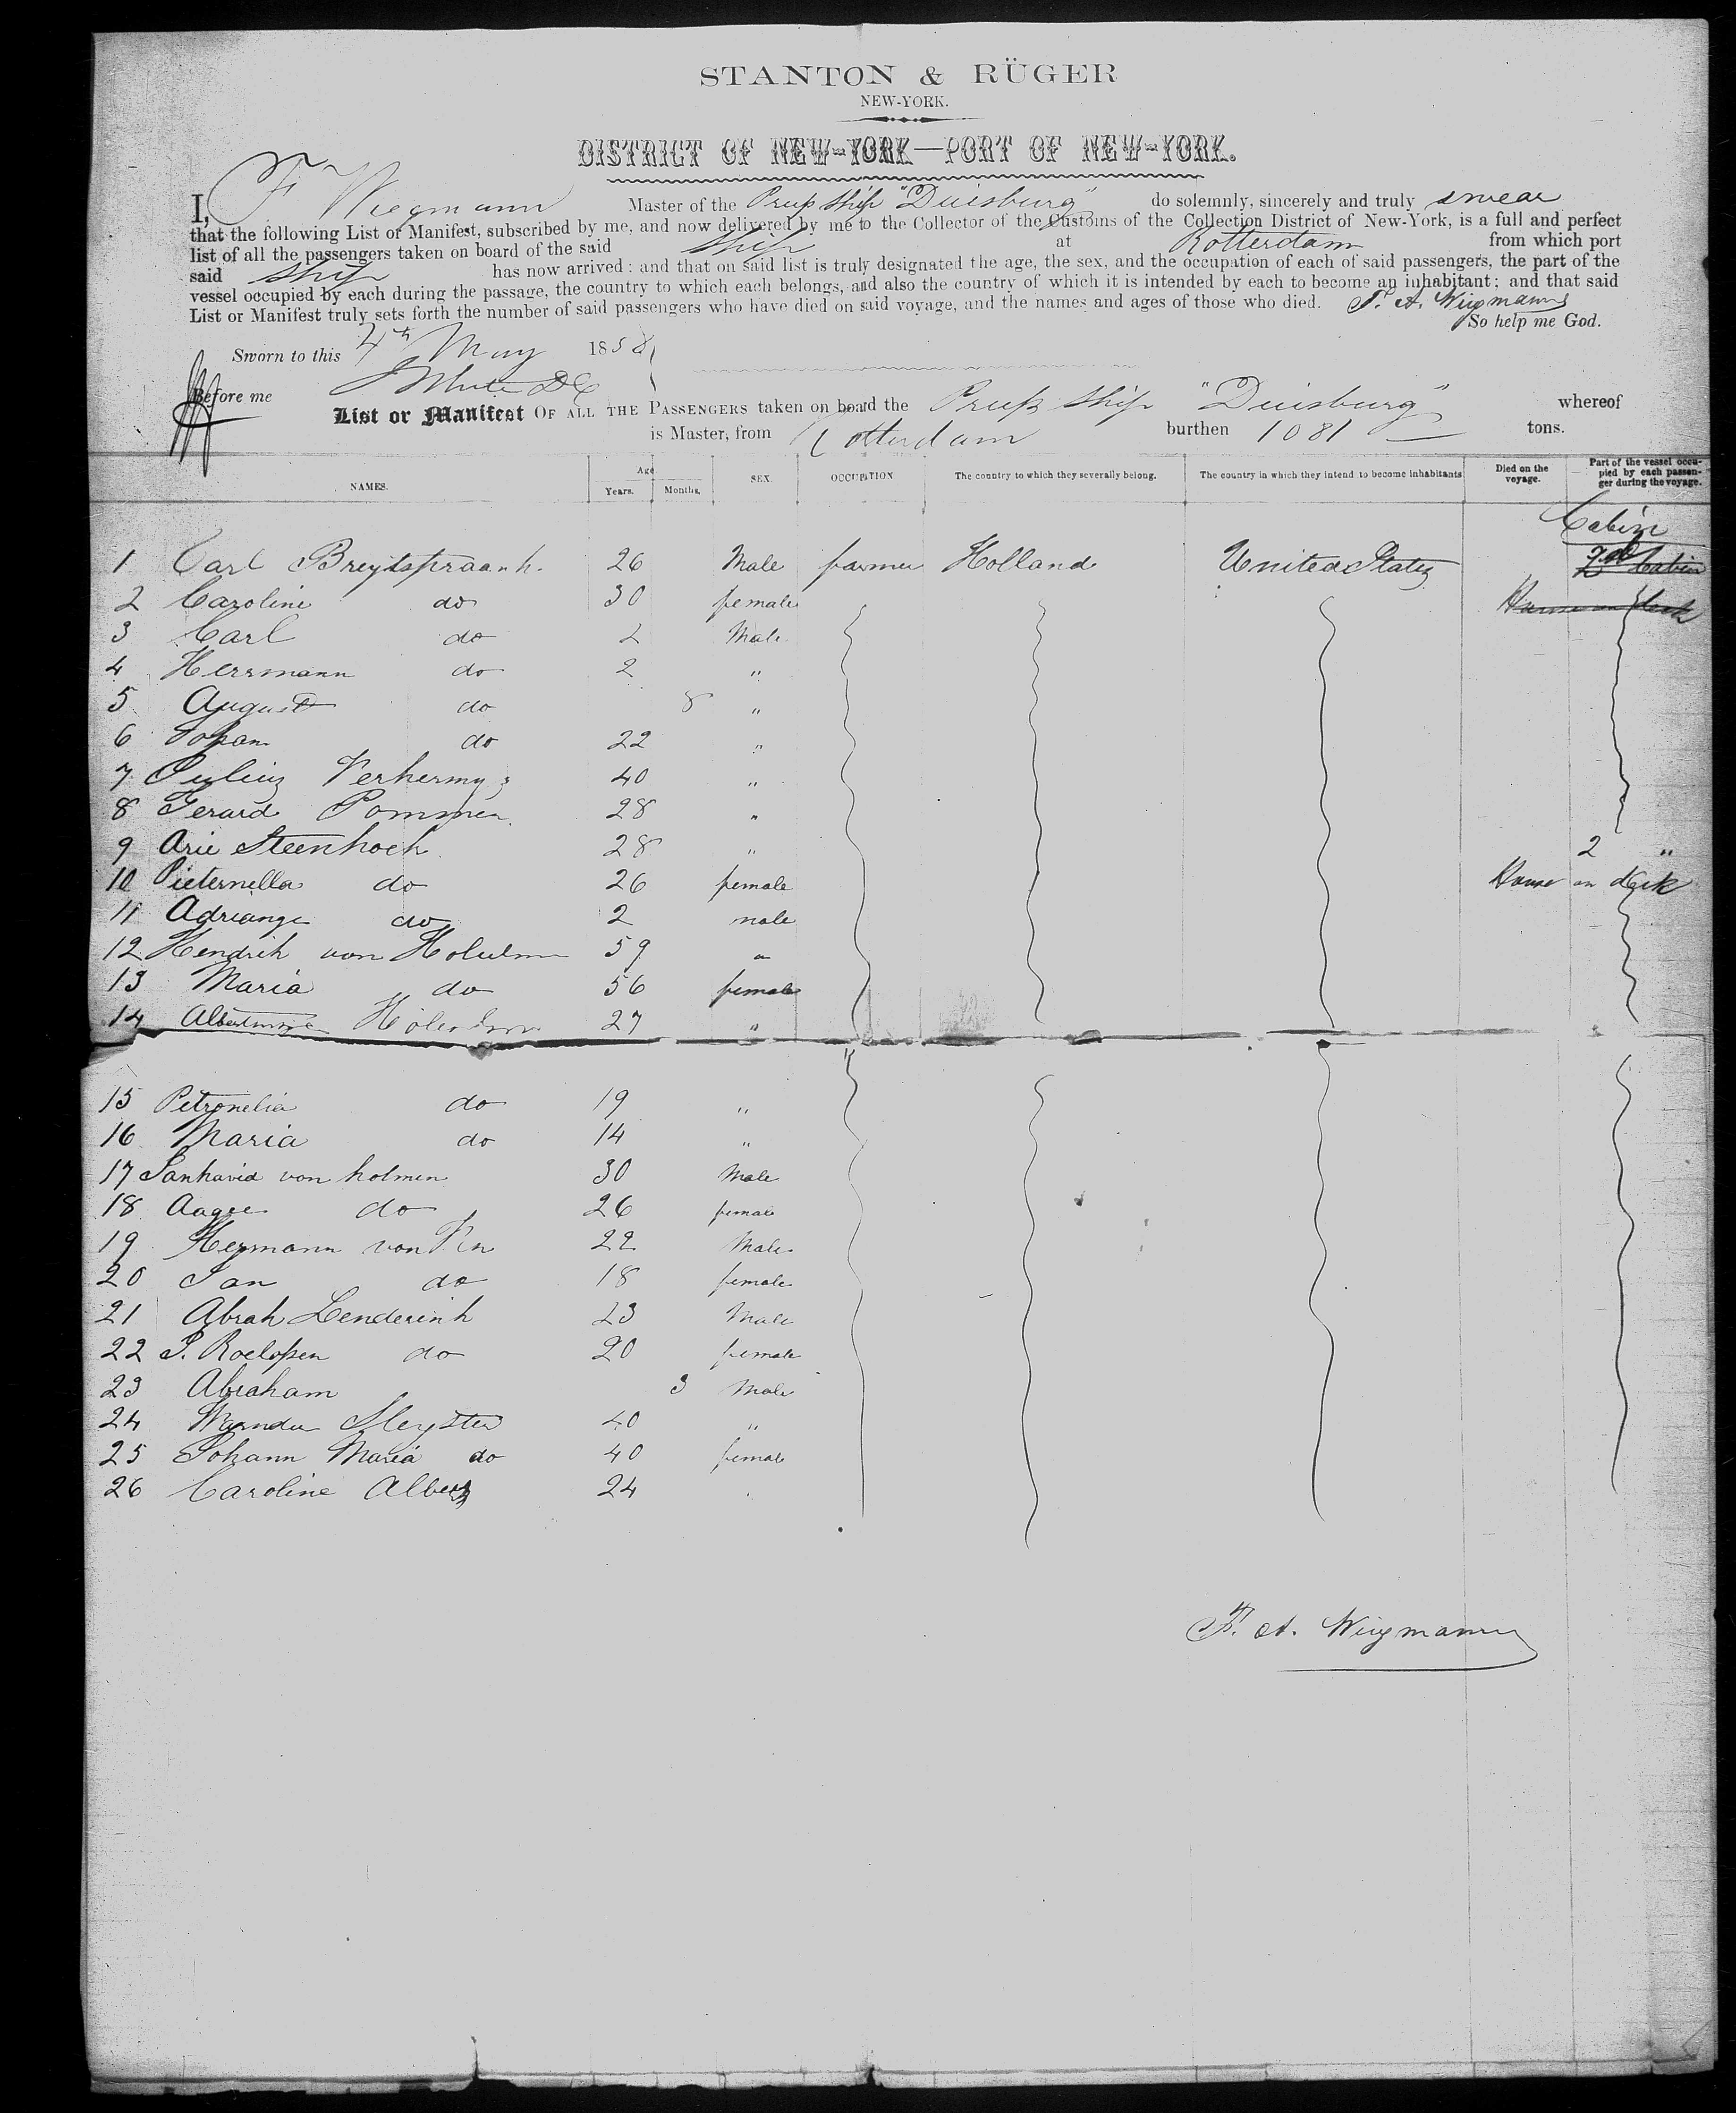 STANTON & RÜGER
NEW-YORK.
DISTRICT OF NEW-YORK—PORT OF NEW-YORK.
I, F Wiegmann Master of the Pruss ship "Duisburg" do solemnly, sincerely and truly swear
that the following List or Manifest, subscribed by me, and now delivered by me to the Collector of the Customs of the Collection District of New-York, is a full and perfect
list of all the passengers taken on board of the said ship at Rotterdam from which port
said ship has now arrived: and that on said list is truly designated the age, the sex, and the occupation of each of said passengers, the part of the
vessel occupied by each during the passage, the country to which each belongs, and also the country of which it is intended by each to become an inhabitant; and that said
List or Manifest truly sets forth the number of said passengers who have died on said voyage, and the names and ages of those who died. F. A. Wiegmann
So help me God.
Sworn to this 4th May 1858
Before me
List or Manifest OF ALL THE PASSENGERS taken on board the Pruss ship "Duisburg" whereof
is Master, from Rotterdam burthen 1081 tons.
NAMES. Age Years. Months. SEX. OCCUPATION The country to which they severally belong. The country in which they intend to become inhabitants Died on the voyage. Part of the vessel occupied by each passenger during the voyage.
Cabin
1 Carl Breytspraank 26 Male farmer Holland United States 2d Cabin
2 Caroline do 30 female House on deck
3 Carl do 2 Male
4 Herrmann do 2 "
5 August do 8 "
6 Johan do 22 "
7 40 "
8 Gerard Pommer 28 "
9 Arie Steenhoek 28 " 2 "
10 Pieternella do 26 female House on deck
11 do 2 male
12 Hendrik von 59 "
13 Maria do 56 female
14 27 "
15 Petronelia do 19 "
16 Maria do 14 "
17 von holmen 30 Male
18 Aagee do 26 female
19 Heymann von 22 Male
20 Jan do 18 female
21 Abrah Lenderink 23 Male
22 Roelofsen do 20 female
23 Abraham 3 Male
24 Sleyster 40 "
25 Johann Maria do 40 female
26 Caroline Albers 24
F. A. Wiegmann